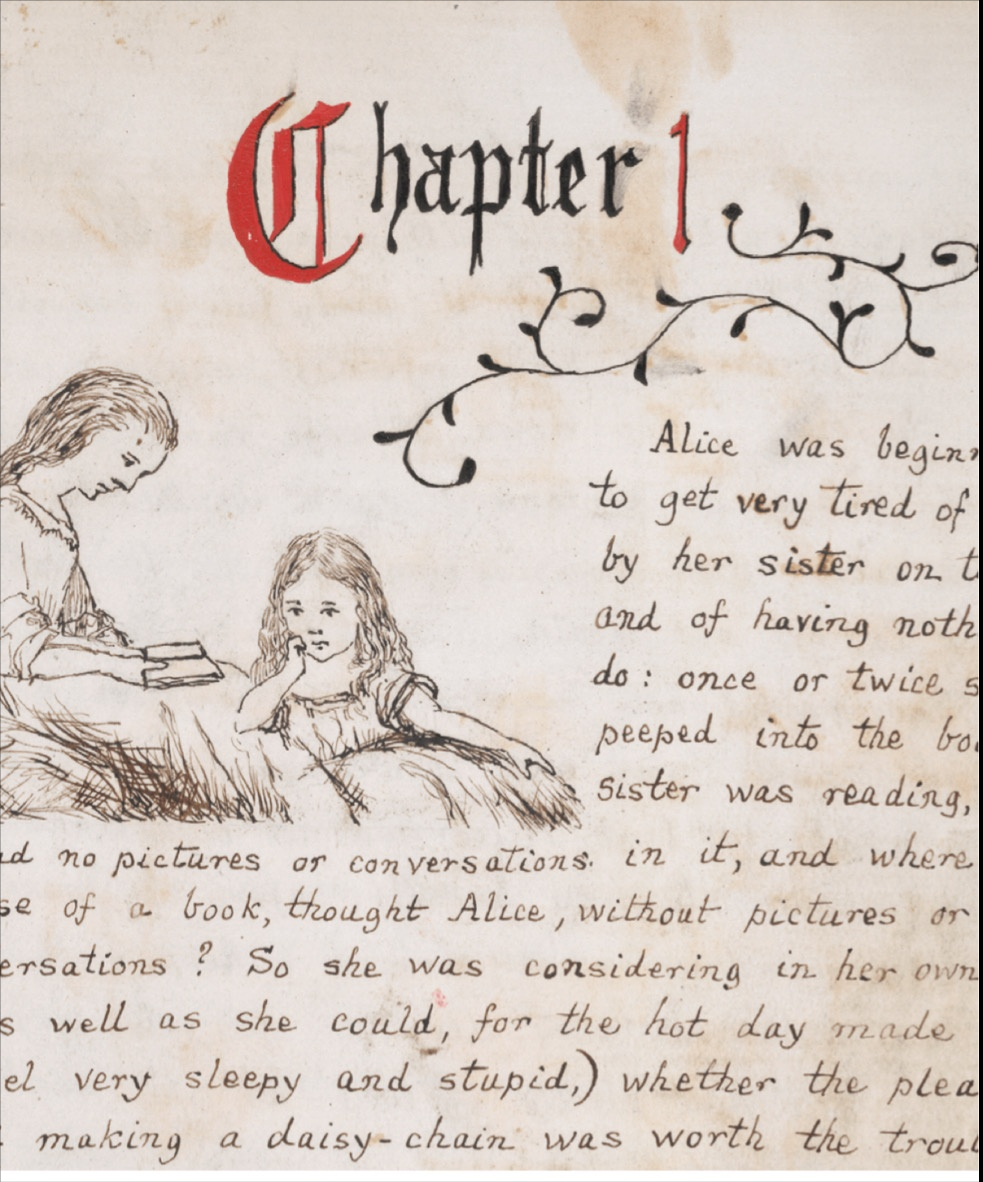 Chapter 1
Alice was beginn
to get very tired of
by her sister on t
and of having noth
do: once or twice s
peeped into the bo
sister was reading,
d no pictures or conversations in it, and where
se of a book, thought Alice, without pictures or
ersations? So she was considering in her own
s well as she could, for the hot day made
el very sleepy and stupid,) whether the plea
making a daisy-chain was worth the trou